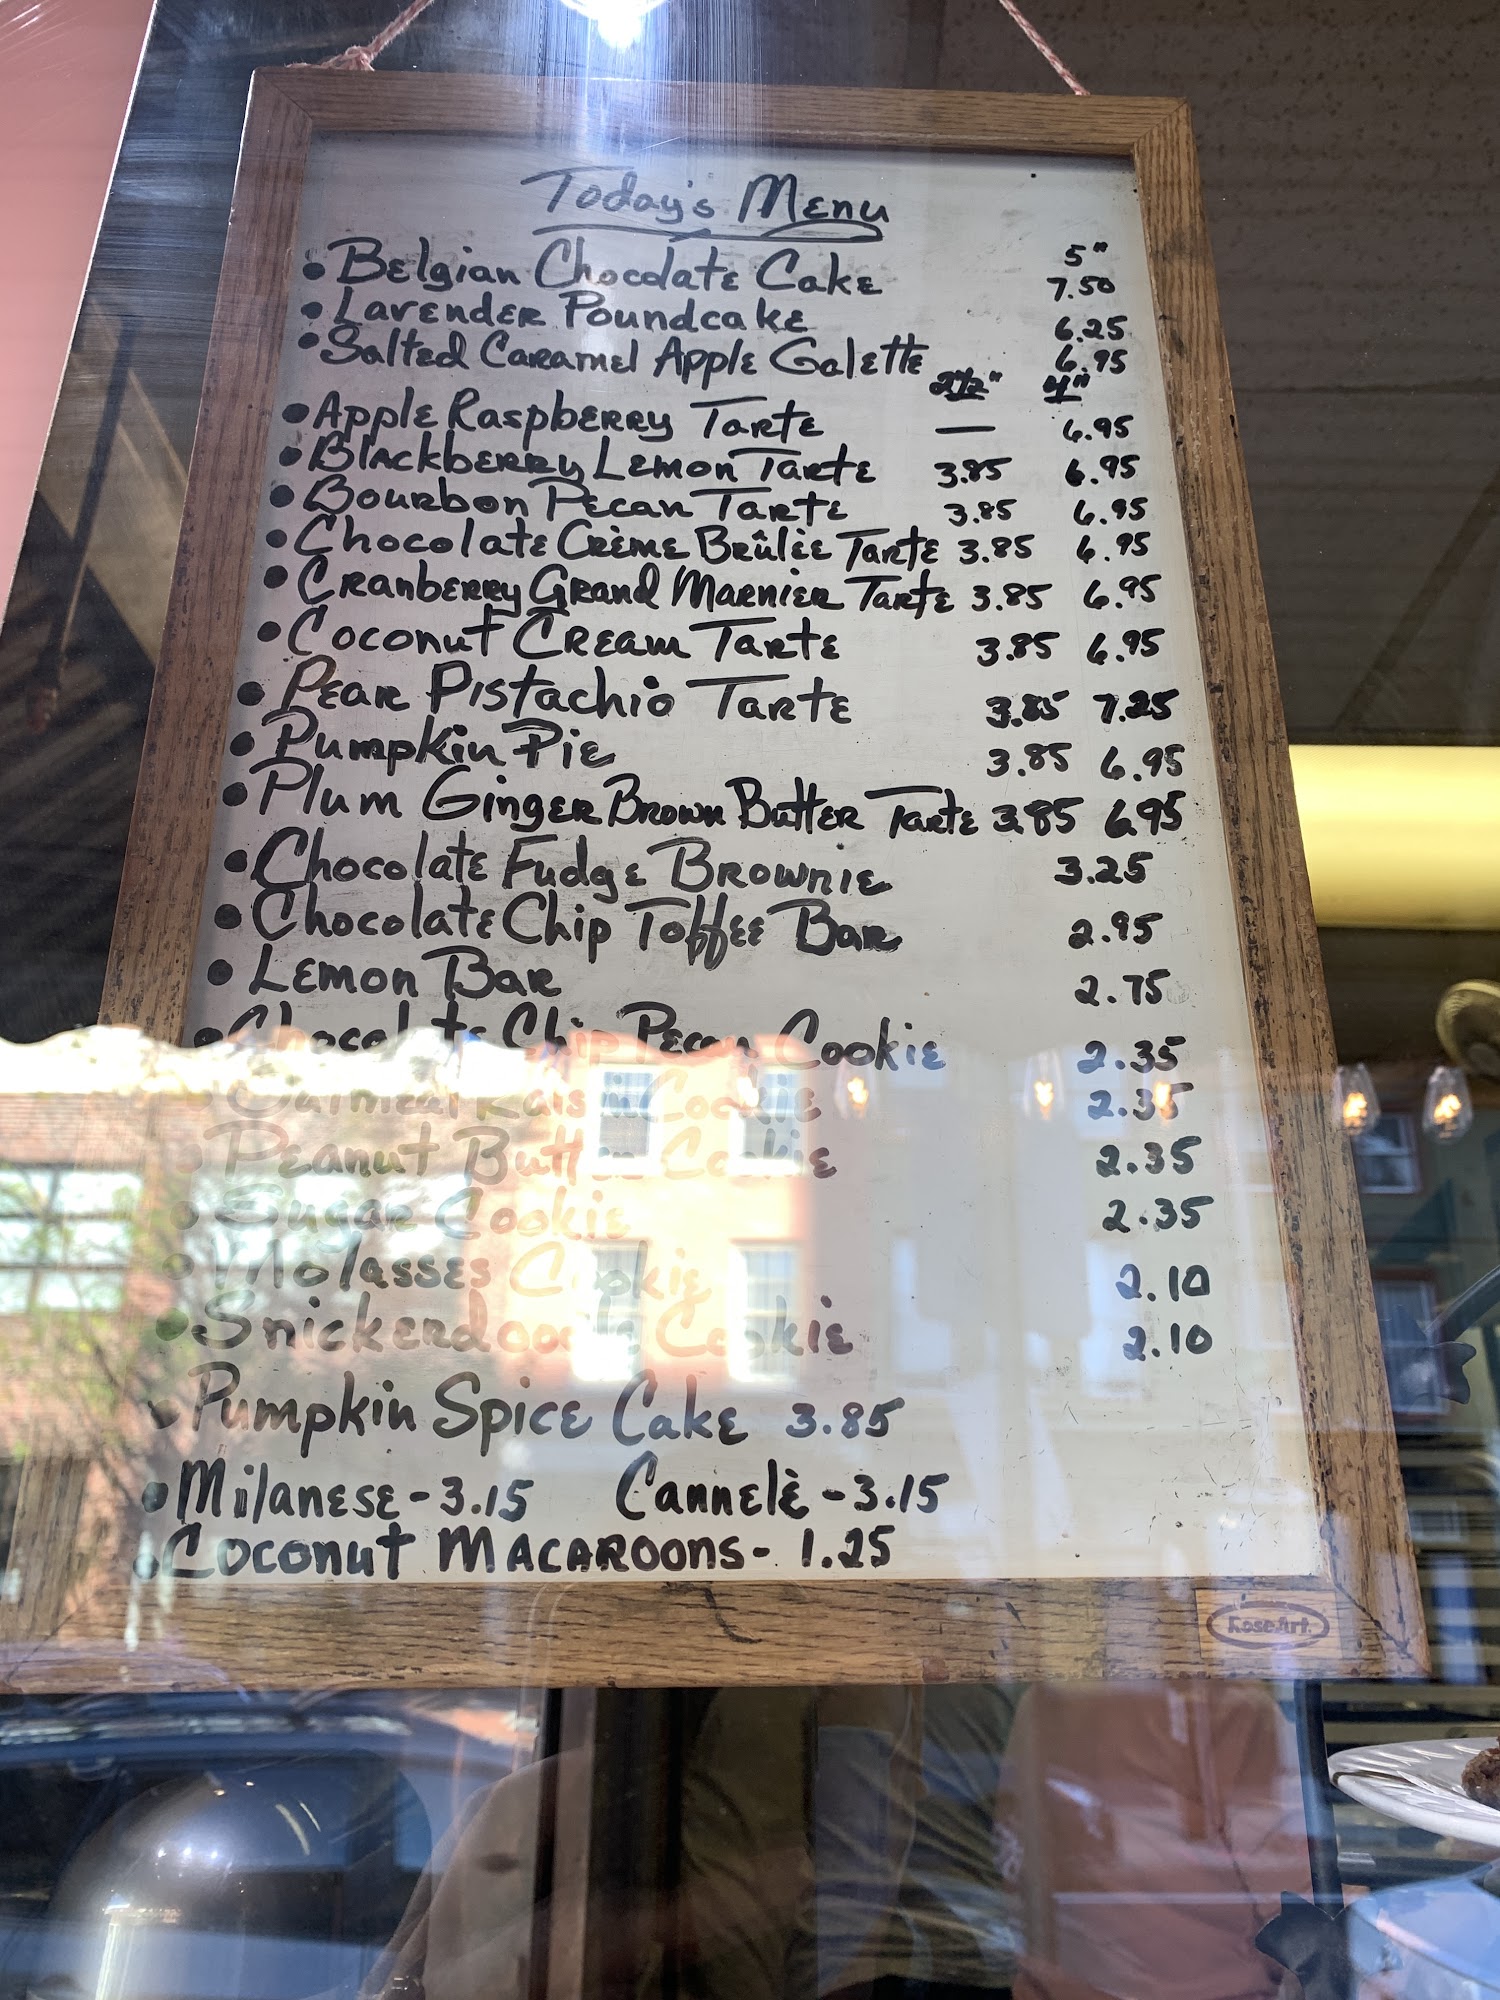 Today's Menu
5"
• Belgian Chocolate Cake 7.50
• Lavender Poundcake 6.25
• Salted Caramel Apple Galette 6.95
2½" 4"
• Apple Raspberry Tarte — 6.95
• Blackberry Lemon Tarte 3.85 6.95
• Bourbon Pecan Tarte 3.85 6.95
• Chocolate Crème Brûlée Tarte 3.85 6.95
• Cranberry Grand Marnier Tarte 3.85 6.95
• Coconut Cream Tarte 3.85 6.95
• Pear Pistachio Tarte 3.85 7.25
• Pumpkin Pie 3.85 6.95
• Plum Ginger Brown Butter Tarte 3.85 6.95
• Chocolate Fudge Brownie 3.25
• Chocolate Chip Toffee Bar 2.95
• Lemon Bar 2.75
• Chocolate Chip Pecan Cookie 2.35
• Oatmeal Raisin Cookie 2.35
• Peanut Butter Cookie 2.35
• Sugar Cookie 2.35
• Molasses Cookie 2.10
• Snickerdoodle Cookie 2.10
• Pumpkin Spice Cake 3.85
• Milanese - 3.15 Cannelè - 3.15
• Coconut Macaroons - 1.25
RoseArt